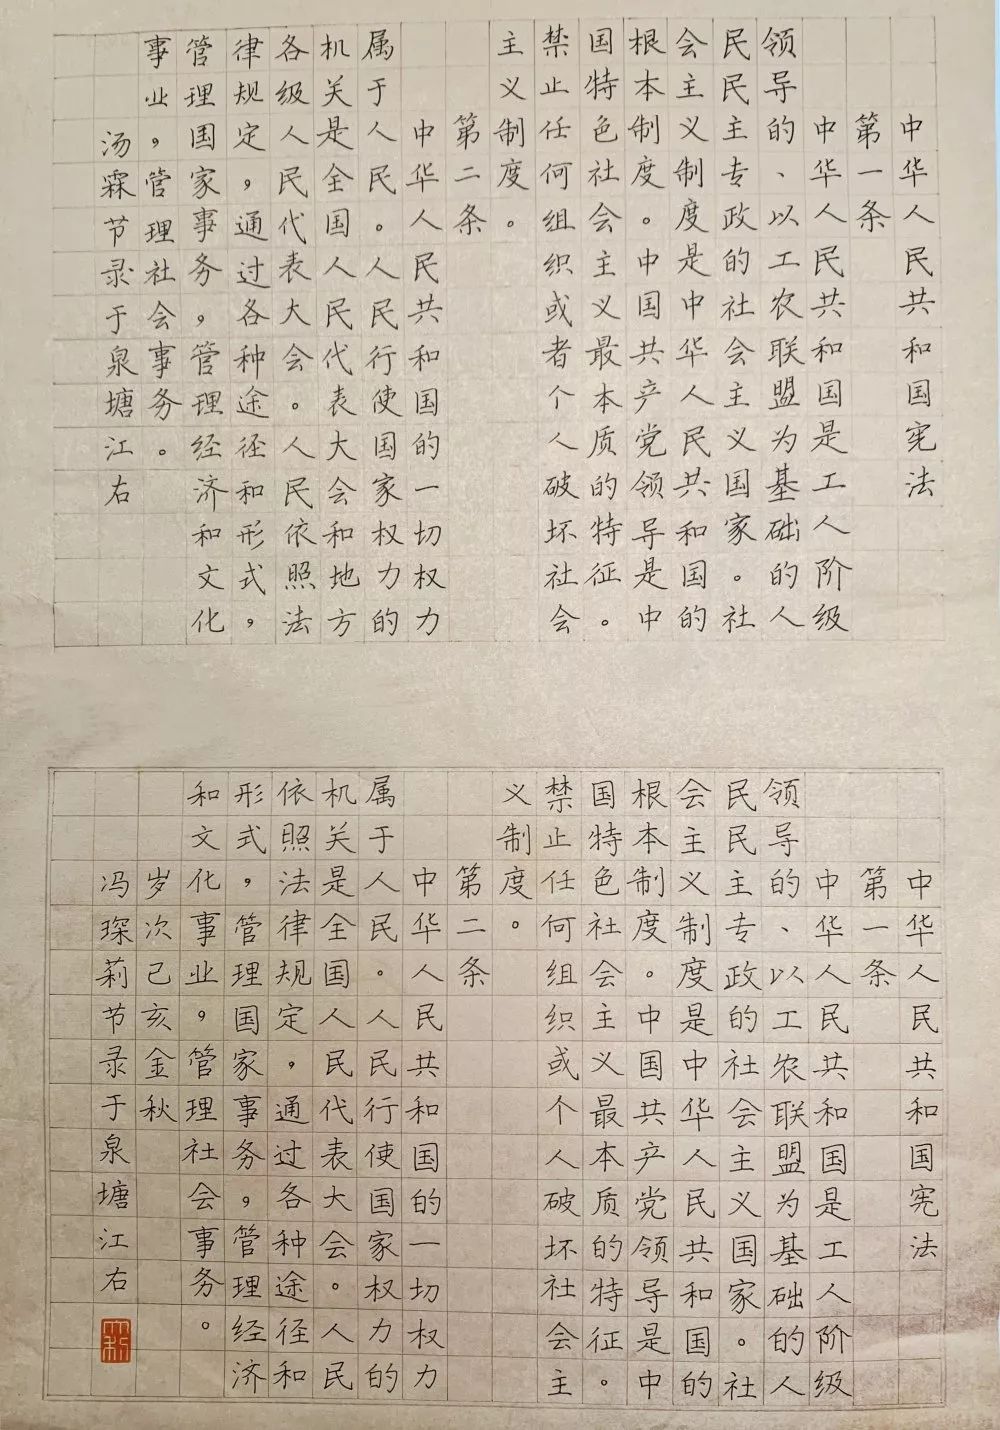 中华人民共和国宪法
第一条
中华人民共和国是工人阶级
领导的、以工农联盟为基础的人
民民主专政的社会主义国家。社
会主义制度是中华人民共和国的
根本制度。中国共产党领导是中
国特色社会主义最本质的特征。
禁止任何组织或者个人破坏社会
主义制度。
第二条
中华人民共和国的一切权力
属于人民。人民行使国家权力的
机关是全国人民代表大会和地方
各级人民代表大会。人民依照法
律规定，通过各种途径和形式，
管理国家事务，管理经济和文化
事业，管理社会事务。
汤霖节录于泉塘江右
中华人民共和国宪法
第一条
中华人民共和国是工人阶级
领导的、以工农联盟为基础的人
民民主专政的社会主义国家。社
会主义制度是中华人民共和国的
根本制度。中国共产党领导是中
国特色社会主义最本质的特征。
禁止任何组织或个人破坏社会主
义制度。
第二条
中华人民共和国的一切权力
属于人民。人民行使国家权力的
机关是全国人民代表大会。人民
依照法律规定，通过各种途径和
形式，管理国家事务，管理经济
和文化事业，管理社会事务。
岁次己亥金秋
冯琛莉节录于泉塘江右